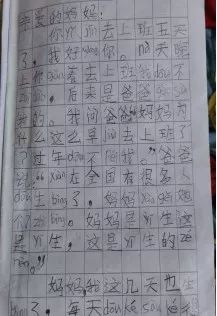 亲爱的妈妈：
你已jīng去上班五天
了，我好xiǎng你。nà天晚
上你dōu去上班我dōu不
后来是爸爸gào sù
我的。我问爸爸"妈妈为
什么这么早jiù去上班了
？过年dōu不陪我。"爸爸
说："xiàn在全国有很多人
dōu生bìng了，妈妈要给他
们bìng。妈妈是yī生这
是yī生，这是yī生的zé
rèn。"
妈妈，我这几天也生
bìng了，每天dōu ké sòu